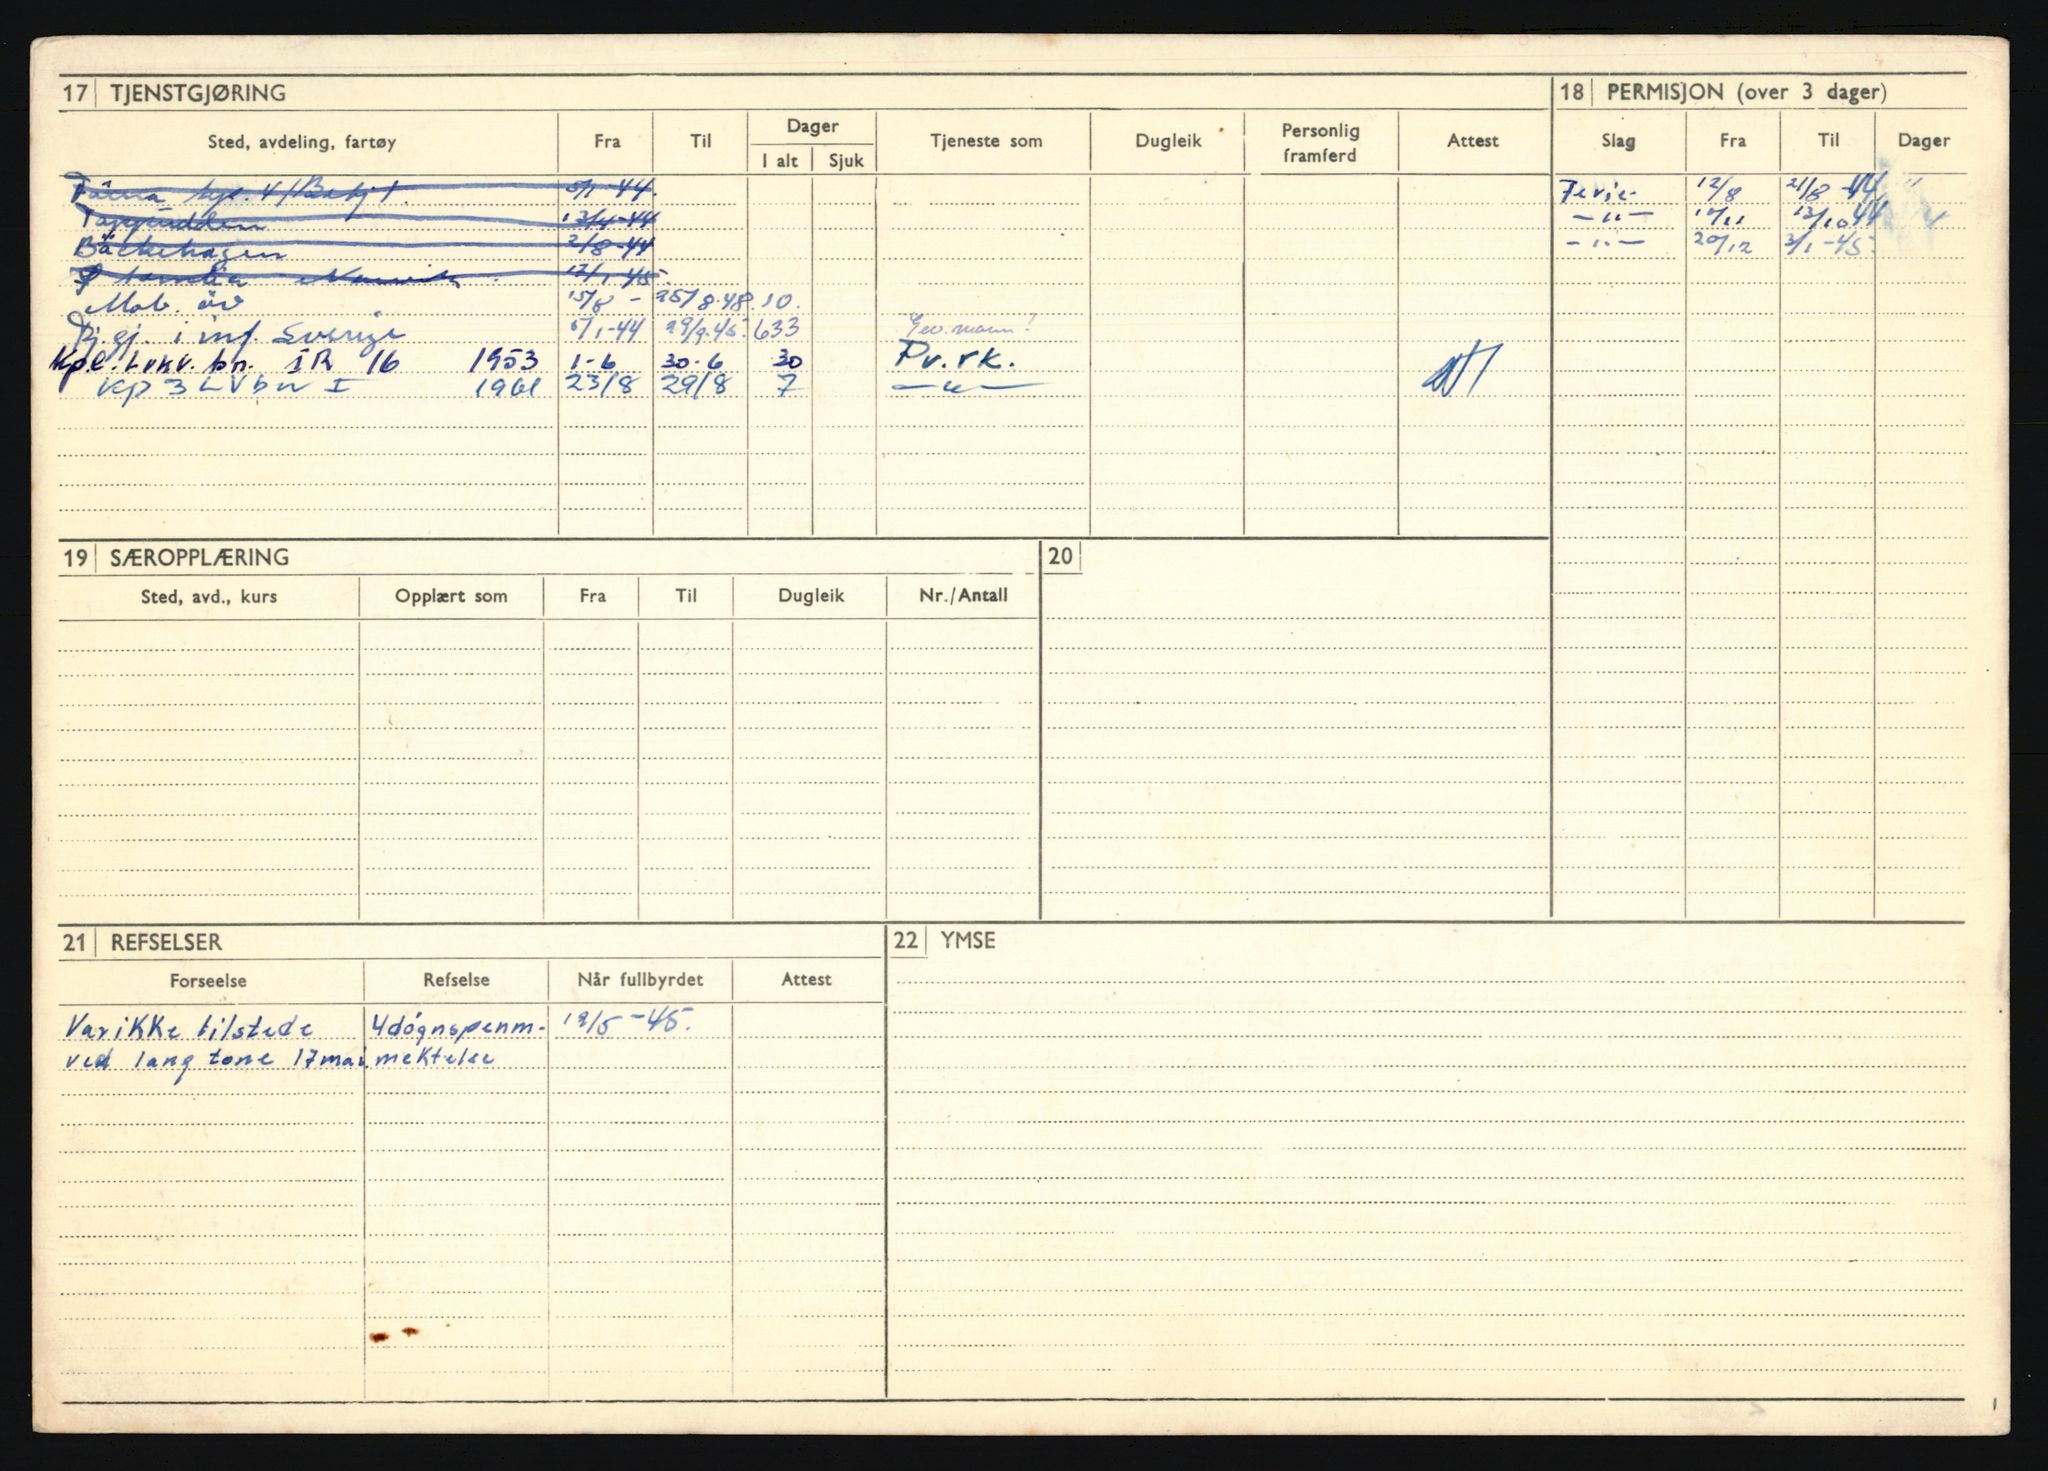 17 TJENSTGJØRING
Sted, avdeling, fartøy Fra Til Dager I alt Sjuk Tjeneste som Dugleik Personlig framferd Attest
5/1-44.
13/4-44
Bäckehagen 2/8-44
12/1-45
Mob. øv 15/8 - 25/8-48. 10.
Tj.gj. i inf. Sverige 5/1-44 29/9-45. 633 Gev. mann?
IR 16 1953 1-6 30-6 30 Pv. rk.
Kp 3 LVbn I 1961 23/8 29/8 7 —"—
18 PERMISJON (over 3 dager)
Slag Fra Til Dager
Ferie 12/8 21/8-44 "
—"— 13/10 44
—"— 20/12 3/1-45.
19 SÆROPPLÆRING
Sted, avd., kurs Opplært som Fra Til Dugleik Nr./Antall
20
21 REFSELSER
Forseelse Refselse Når fullbyrdet Attest
Var ikke tilstede 4 døgns penm- 19/5-45.
ved lang tone 17 mai.
22 YMSE